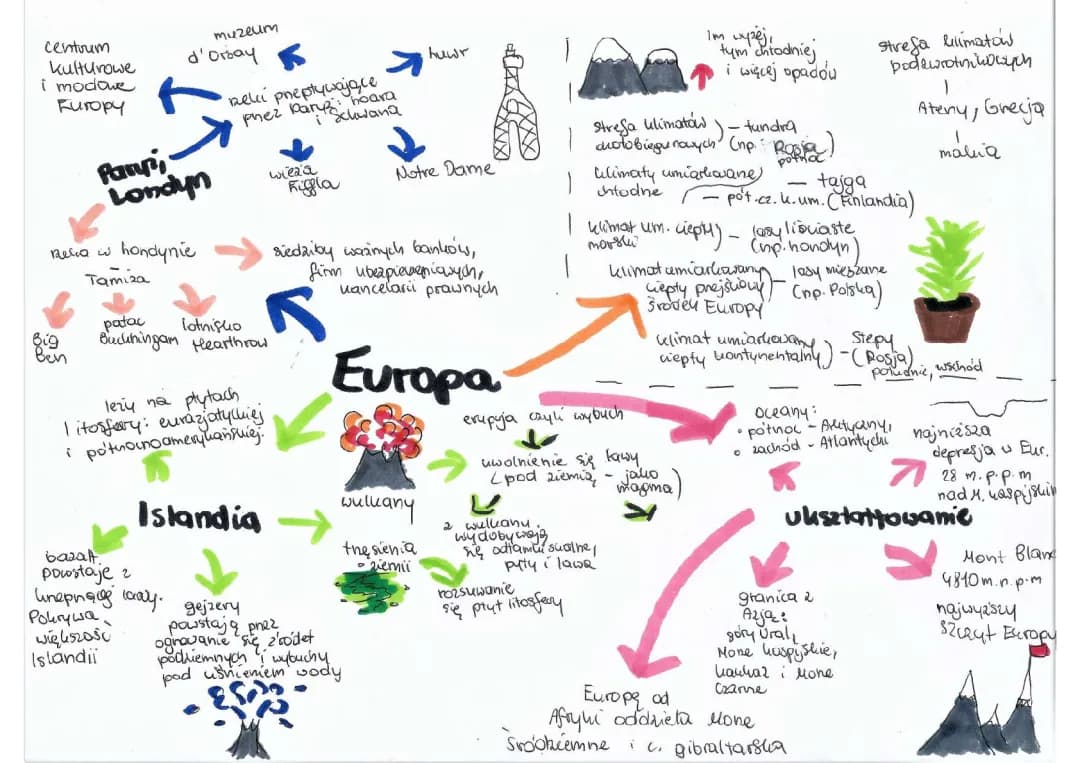 centrum
kulturowe
i modowe
Europy
muzeum
d'Orsay
luwr
rzeki przepływające
przez Paryż: Loara
i Sekwana
wieża
Eiffla
Notre Dame
Paryż,
Londyn
rzeka w Londynie
Tamiza
Big
Ben
pałac
Buckhingam
lotnisko
Hearthrow
siedziby ważnych banków,
firm ubezpieczeniowych,
kancelarii prawnych
Im wyżej,
tym chłodniej
i więcej opadów
strefa klimatów
podzwrotnikowych
Ateny, Grecja
makia
strefa klimatów
okołobiegunowych) – tundra
(np. Rosja)
północ
klimaty umiarkowane
chłodne – tajga
– pół. cz. k. um. (Finlandia)
klimat um. ciepły
morski) – lasy liściaste
(np. Londyn)
klimat umiarkowany
ciepły przejściowy) – lasy mieszane
(np. Polska)
środek Europy
klimat umiarkowany
ciepły kontynentalny) – Stepy
(Rosja)
południe, wschód
Europa
leży na płytach
litosfery: eurazjatyckiej
i północnoamerykańskiej.
Islandia
wulkany
erupcja czyli wybuch
uwolnienie się lawy
(pod ziemią – jako
magma)
z wulkanu
wydobywają
się odłamki skalne,
pyły i lawa
trzęsienia
ziemii
rozsuwanie
się płyt litosfery
bazalt
powstaje z
krzepnącej lawy.
Pokrywa
większość
Islandii
gejzery
powstają przez
ogrzewanie się źródeł
podziemnych i wybuchy
pod ciśnieniem wody
oceany:
• północ – Arktyczny,
• zachód – Atlantycki
najniższa
depresja w Eur.
28 m. p. p. m
nad M. Kaspijskim
ukształtowanie
Mont Blanc
4810 m. n. p. m
najwyższy
szczyt Europy
granica z
Azją:
góry Ural,
Morze Kaspijskie,
Kaukaz i Morze
Czarne
Europę od
Afryki oddziela Morze
Śródziemne i c. gibraltarska